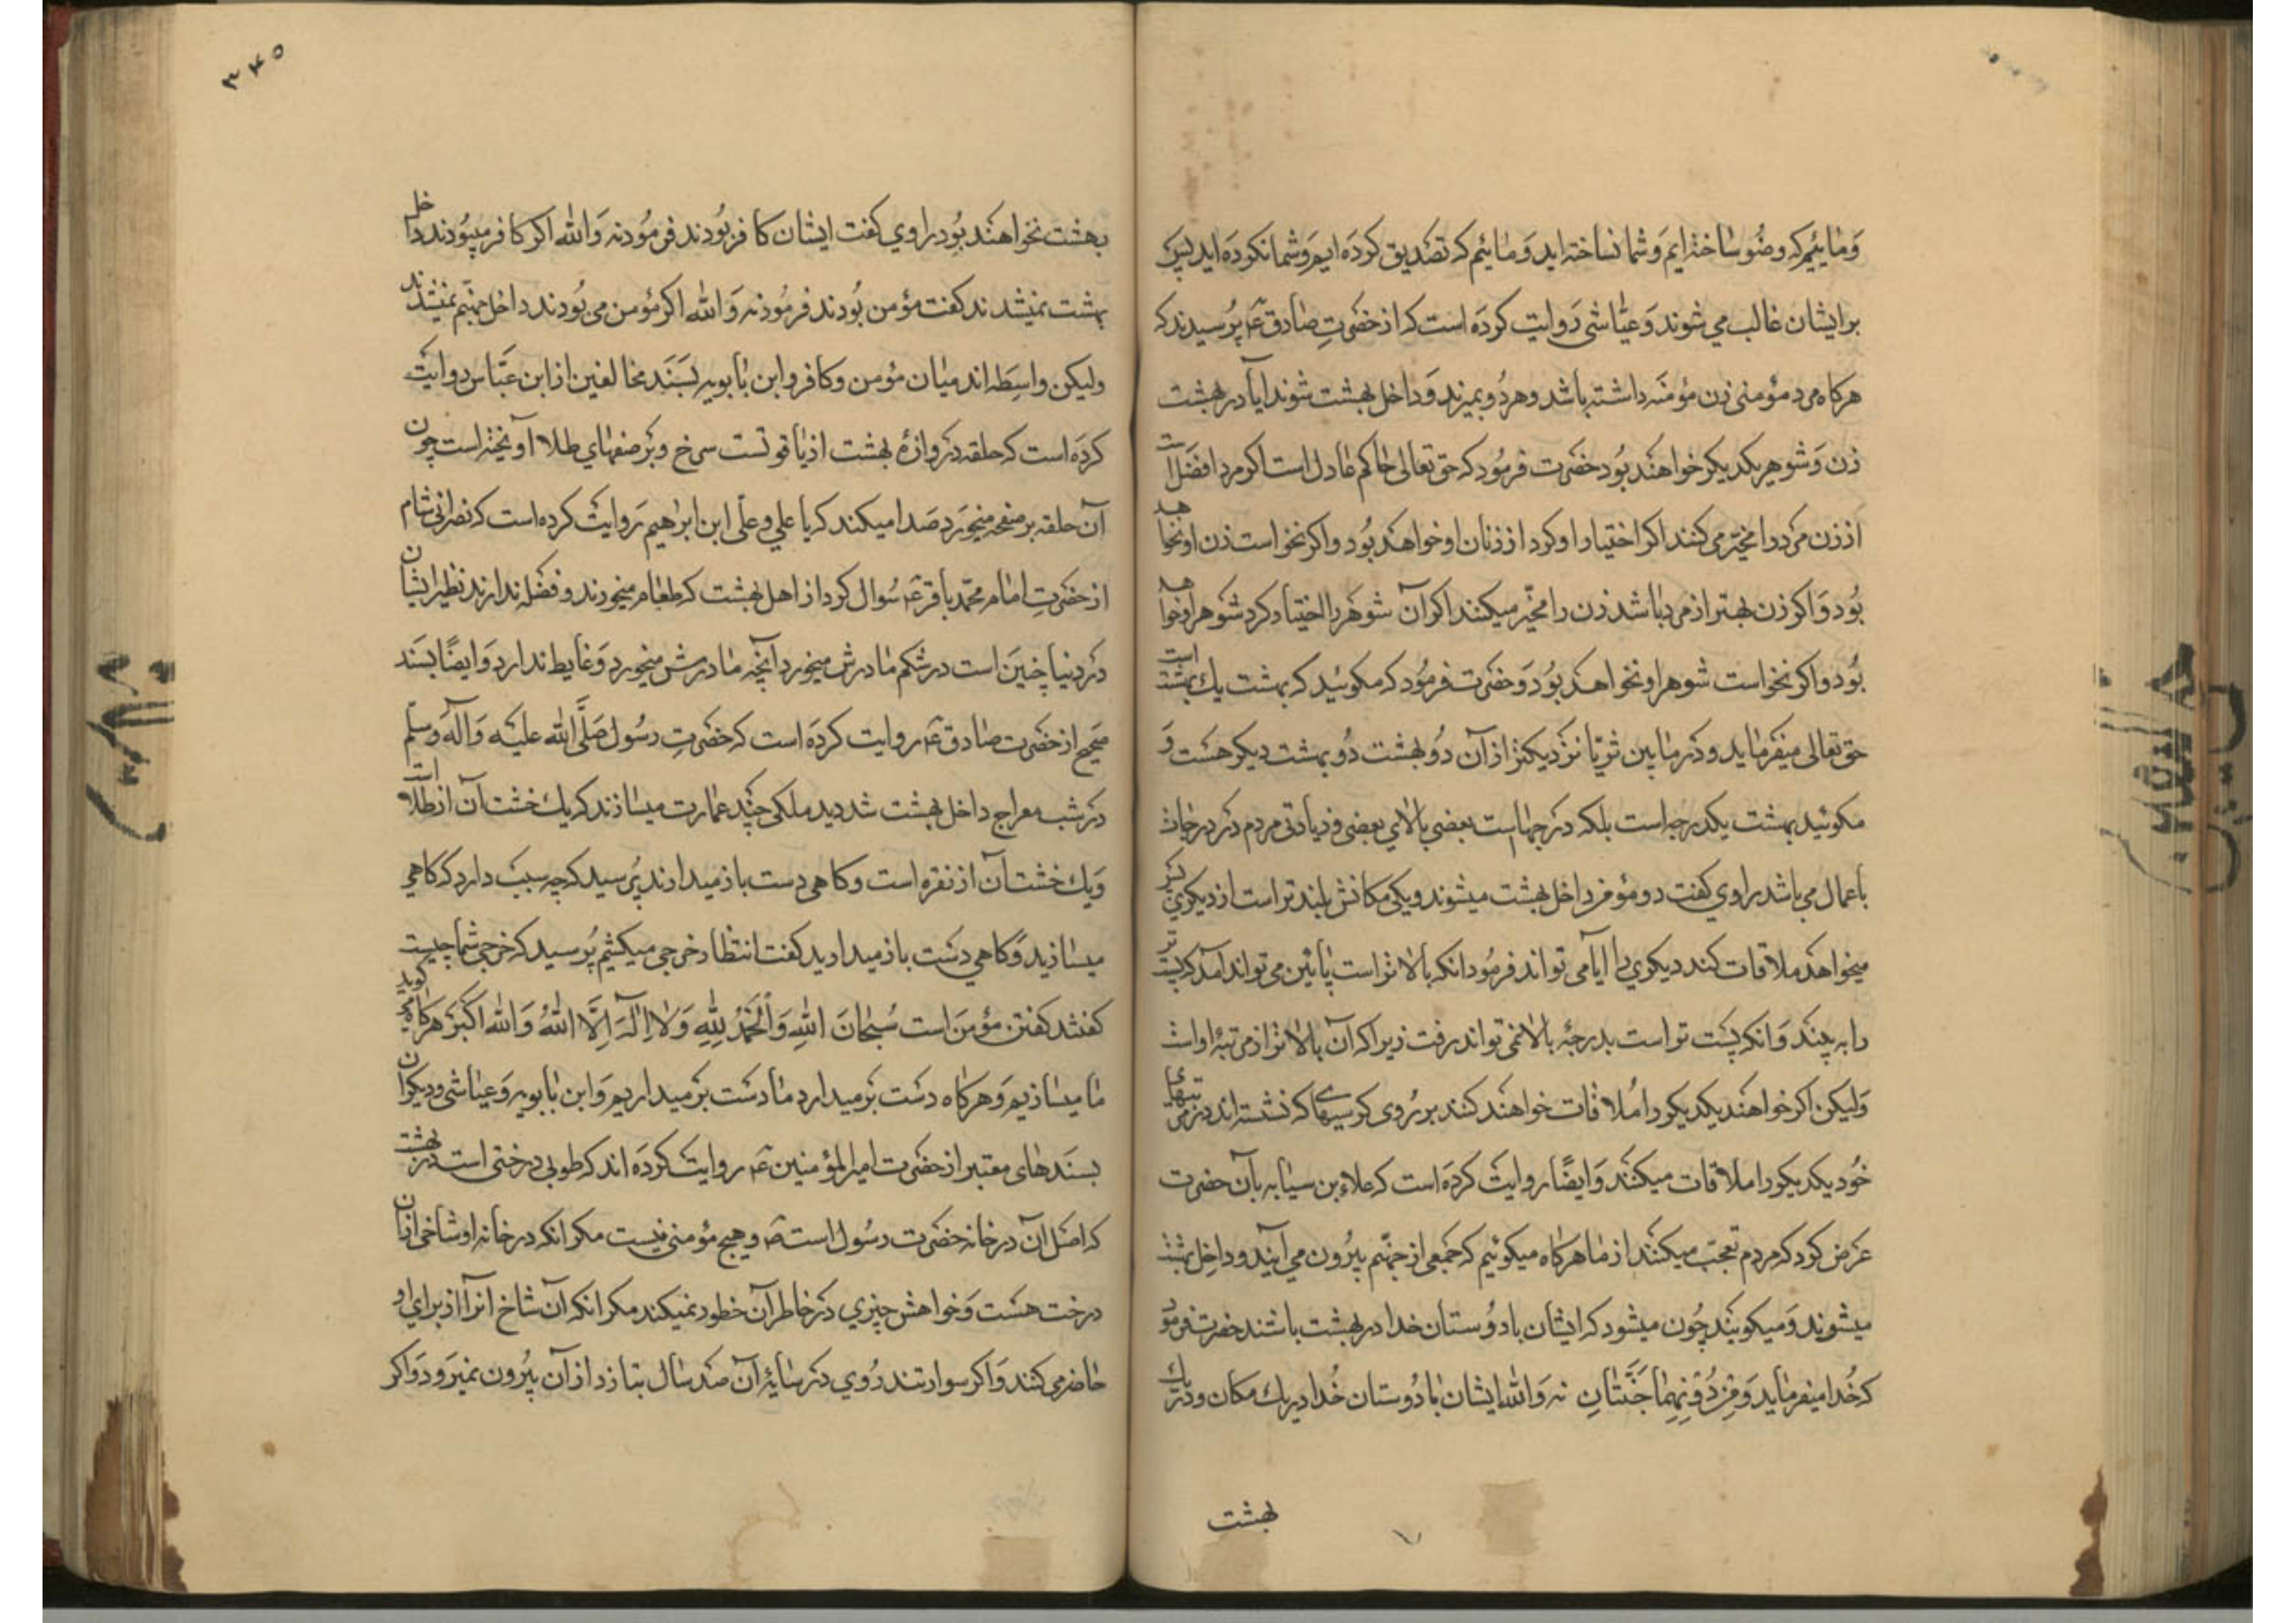 و مائیم که وضو ساخته ایم و شما نساخته اید و مائیم که تصدیق کرده ایم و شما نکرده اید پس
بر ایشان غالب می شوند و عیاشی روایت کرده است که از حضرت صادق ع پرسیدند که
هرکاه مرد مؤمنی زن مؤمنه داشته باشد و هر دو بمیرند و داخل بهشت شوند ایا در بهشت
زن و شوهر یکدیکر خواهند بود حضرت فرمود که حق تعالی حاکم عادل است اکر مرد افضل است
از زن مرد را مخیر می کنند اکر اختیار او کرد از زنان او خواهد بود و اکر نخواست زن او نخواهد
بود و اکر زن بهتر از مرد باشد زن را مخیر میکنند اکر آن شوهر را اختیار کرد شوهر او خواهد
بود و اکر نخواست شوهر او نخواهد بود و حضرت فرمود که مکوئید که بهشت یک بهشت است
حق تعالی میفرماید و در مابین ثریا نزدیکتر از آن دو بهشت دو بهشت دیکر هست و
مکوئید بهشت یکدرجه است بلکه درجهاست بعضی بالای بعضی و زیادتی مردم در درجات
باعمال می باشد راوی کفت دو مؤمن داخل بهشت میشوند و یکی مکانش بلند تر است از دیکری
میخواهد ملاقات کند دیکری را ایا می تواند فرمود انکه بالاتر است پائین می تواند آمد که پست تر
را به بیند و انکه پست تر است بدرجهٔ بالا نمی تواند رفت زیرا که آن بالاتر از مرتبهٔ اوست
ولیکن اکر خواهند یکدیکر را ملاقات خواهند کنند بر روی کرسیهای که نشسته اند در مرتبهای
خود یکدیکر را ملاقات میکنند و ایضا روایت کرده است که علاء بن سیابه بآن حضرت
عرض کرد که مردم تعجب میکنند از ما هرکاه میکوئیم که جمعی از جهنم بیرون می آیند و داخل بهشت
میشوند و میکویند چون میشود که ایشان با دوستان خدا در بهشت باشند حضرت فرمود
که خدا میفرماید وَمِن دُونِهِمَا جَنَّتَانِ نه والله ایشان با دوستان خدا در یک مکان و در یک
بهشت
۳۴۵
بهشت نخواهند بود راوی کفت ایشان کافر بودند فرمود نه والله اکر کافر میبودند داخل
بهشت نمیشدند کفت مؤمن بودند فرمود نه والله اکر مؤمن می بودند داخل جهنم نمیشدند
ولیکن واسطه اند میان مؤمن و کافر و ابن بابویه بسند مخالفین از ابن عباس روایت
کرده است که حلقه دروازهٔ بهشت از یاقوتست سرخ و بر صفهای طلا آویخته است چون
آن حلقه بر صفحه میخورد صدا میکند که یا علی و علی ابن ابراهیم روایت کرده است که نصرانی شام
از حضرت امام محمد باقر ع سوال کرد از اهل بهشت که طعام میخورند و فضله ندارند نظیر ایشان
در دنیا چنین است در شکم مادرش میخورد آنچه مادرش میخورد و غایط ندارد و ایضا بسند
صحیح از حضرت صادق ع روایت کرده است که حضرت رسول صلی الله علیه و آله وسلم
در شب معراج داخل بهشت شد دید ملکی چند عمارت میسازند که یک خشت آن از طلا است
و یک خشت آن از نقره است و کاهی دست باز میدارند پرسید که چه سبب دارد که کاهی
میسازید و کاهی دست باز میدارید کفت انتظار خرجی میکشیم پرسید که خرجی شما چیست
کفتند کفتن مؤمن است سُبْحَانَ اللهِ وَالْحَمْدُ لِلّٰهِ وَلَا اِلٰهَ اِلَّا اللهُ وَاللهُ اَکْبَرْ هرکاه میکوید
ما میسازیم و هرکاه دست بر میدارد ما دست بر میداریم و ابن بابویه و عیاشی و دیکران
بسندهای معتبر از حضرت امیرالمؤمنین ع روایت کرده اند که طوبی درختی است در بهشت
که اصل آن در خانه حضرت رسول است ص و هیچ مؤمنی نیست مکر انکه در خانه او شاخی از آن
درخت هست و خواهش چیزی در خاطر آن خطور نمیکند مکر انکه آن شاخ آنرا از برای او
حاضر می کنند و اکر سوار تند روی در سایهٔ آن صد سال بتازد از آن بیرون نمیرود و اکر